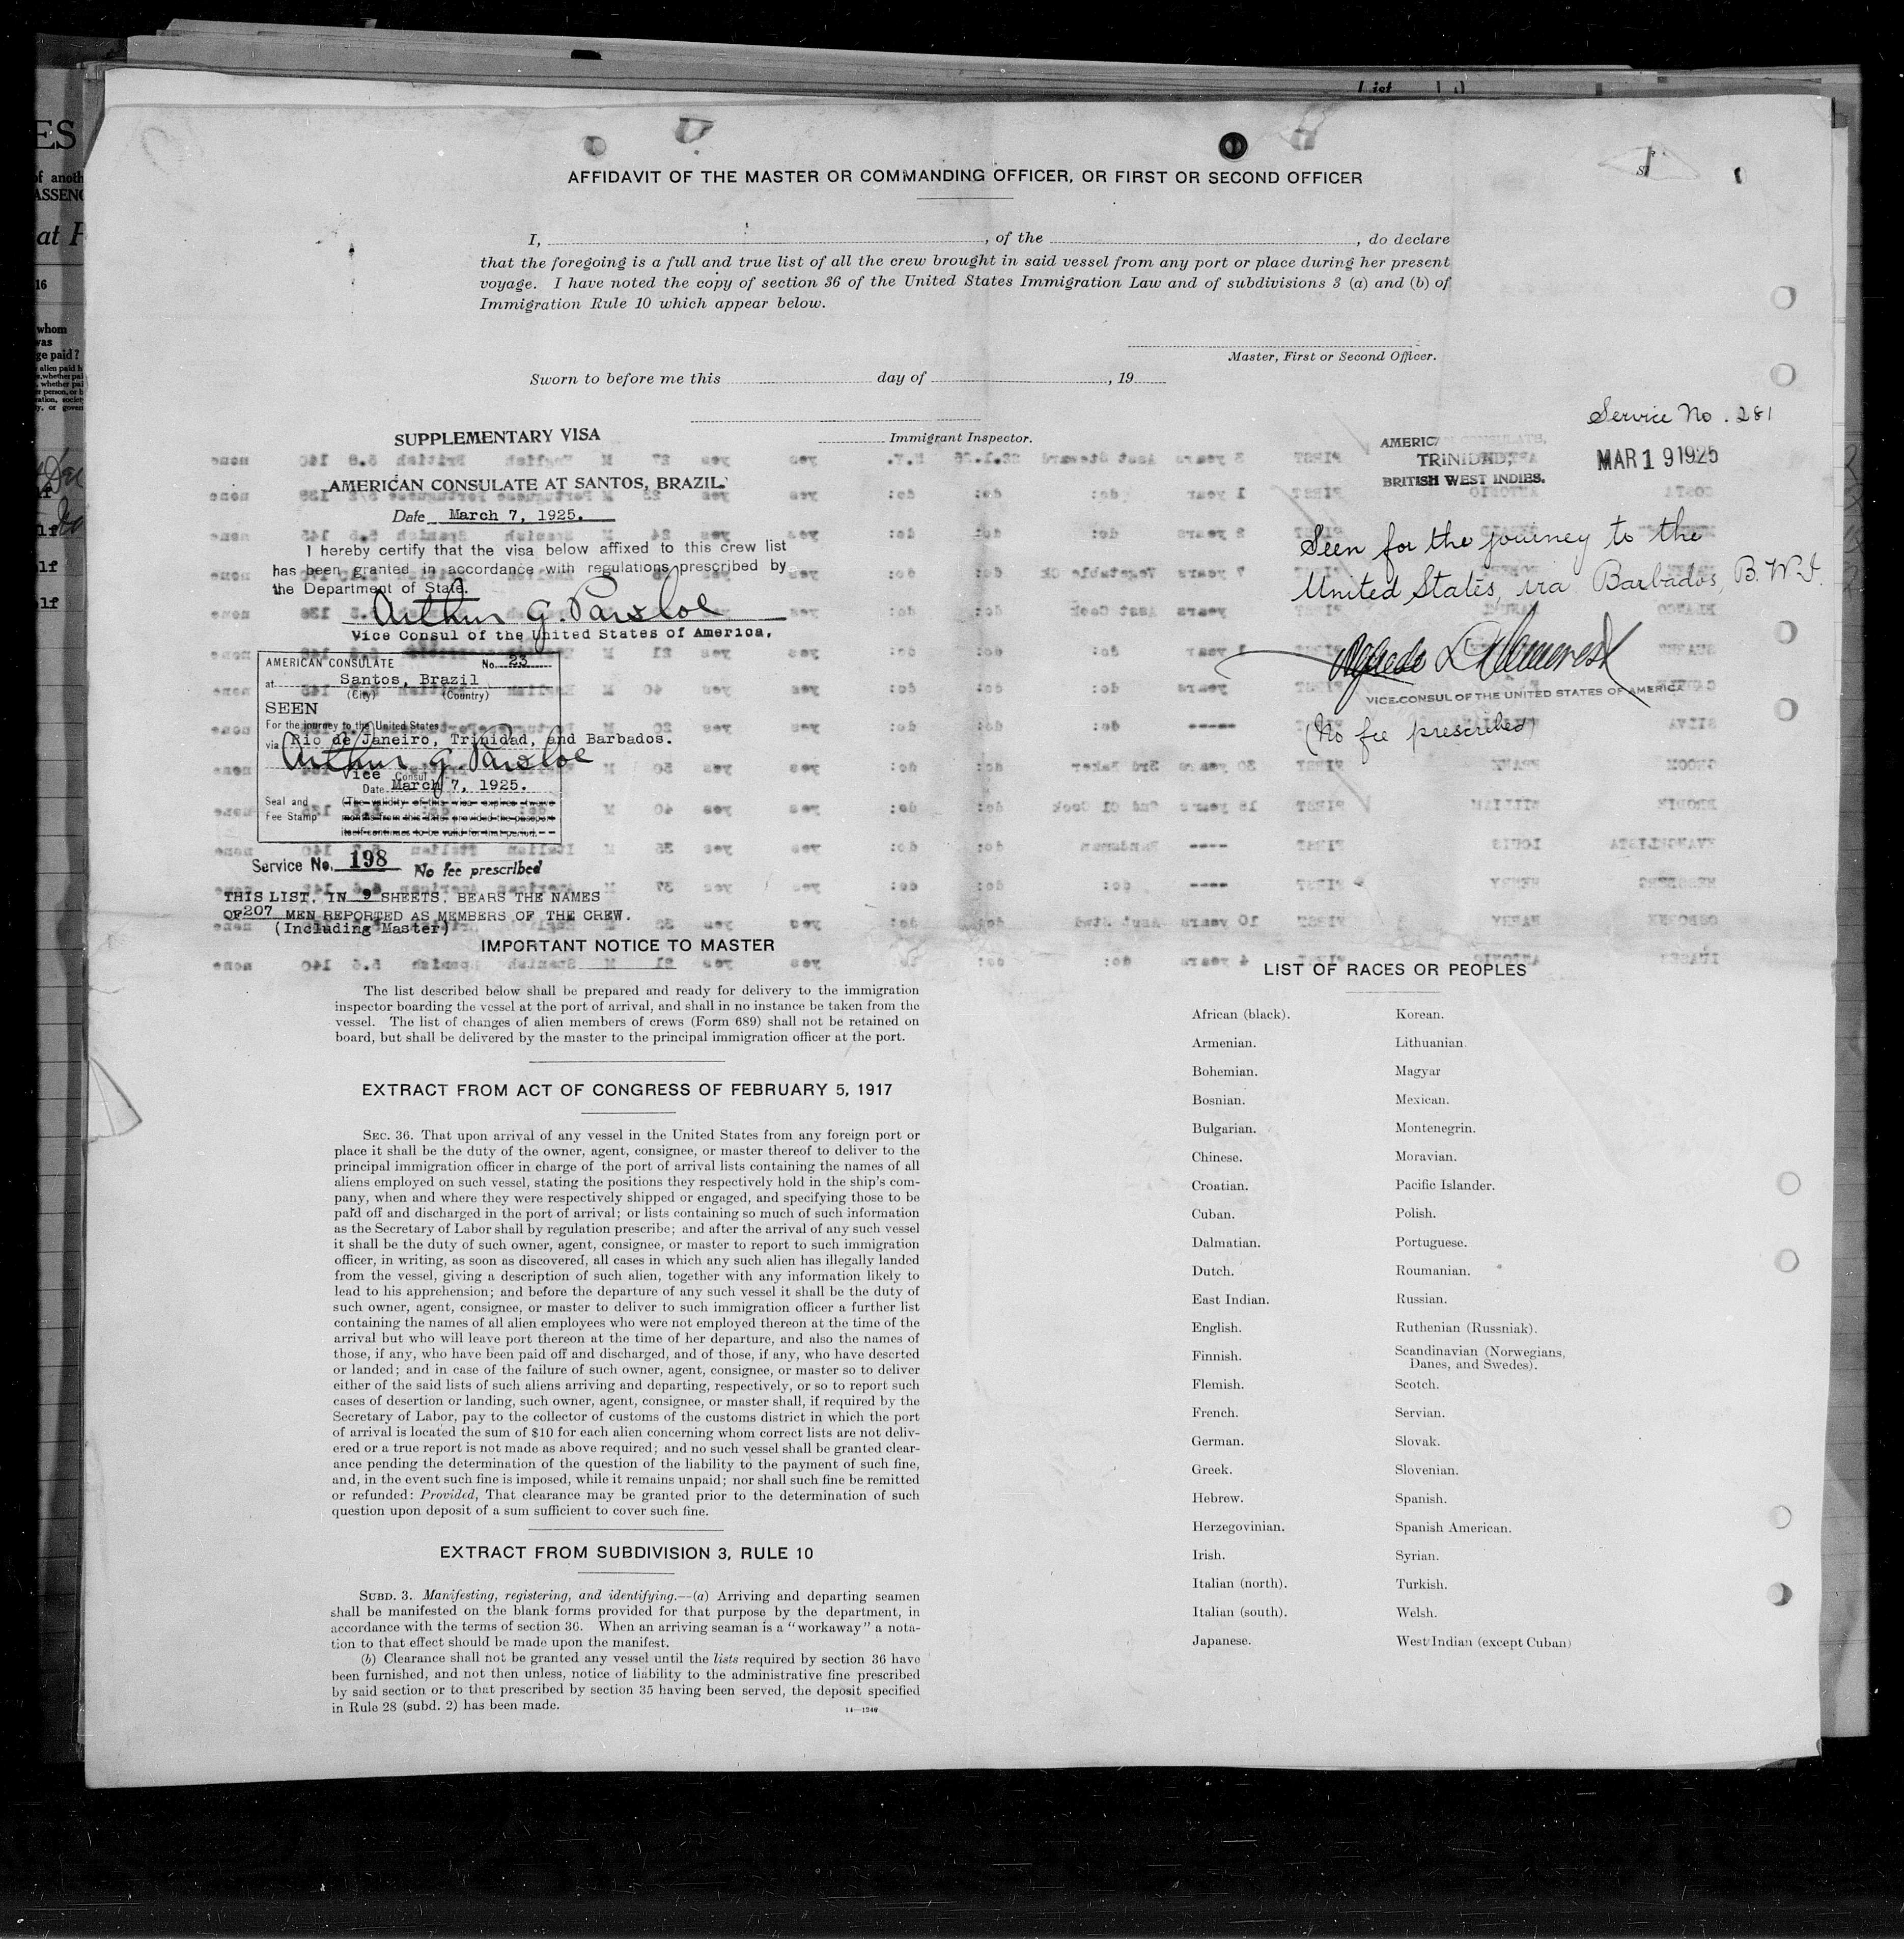 AFFIDAVIT OF THE MASTER OR COMMANDING OFFICER, OR FIRST OR SECOND OFFICER
I, , of the , do declare
that the foregoing is a full and true list of all the crew brought in said vessel from any port or place during her present
voyage. I have noted the copy of section 36 of the United States Immigration Law and of subdivisions 3 (a) and (b) of
Immigration Rule 10 which appear below.
Master, First or Second Officer.
Sworn to before me this day of , 19
Immigrant Inspector.
SUPPLEMENTARY VISA
AMERICAN CONSULATE AT SANTOS, BRAZIL.
Date March 7, 1925.
I hereby certify that the visa below affixed to this crew list
has been granted in accordance with regulations prescribed by
the Department of State.
Arthur G. Parsloe
Vice Consul of the United States of America.
AMERICAN CONSULATE No. 23
at Santos, Brazil
(City) (Country)
SEEN
For the journey to the United States
via Rio de Janeiro, Trinidad, and Barbados.
Arthur G. Parsloe
Vice Consul
Date March 7, 1925.
Seal and
Fee Stamp
(The validity of this visa expires twelve
months from this date, provided the passport
itself continues to be valid for that period.
Service No. 198 No fee prescribed
THIS LIST, IN 9 SHEETS, BEARS THE NAMES
OF 207 MEN REPORTED AS MEMBERS OF THE CREW.
(Including Master)
Service No. 281
AMERICAN CONSULATE,
TRINIDAD,
BRITISH WEST INDIES.
MAR 19 1925
Seen for the journey to the
United States, via Barbados, B.W.I.
VICE-CONSUL OF THE UNITED STATES OF AMERICA
(No fee prescribed)
IMPORTANT NOTICE TO MASTER
The list described below shall be prepared and ready for delivery to the immigration
inspector boarding the vessel at the port of arrival, and shall in no instance be taken from the
vessel. The list of changes of alien members of crews (Form 689) shall not be retained on
board, but shall be delivered by the master to the principal immigration officer at the port.
EXTRACT FROM ACT OF CONGRESS OF FEBRUARY 5, 1917
SEC. 36. That upon arrival of any vessel in the United States from any foreign port or
place it shall be the duty of the owner, agent, consignee, or master thereof to deliver to the
principal immigration officer in charge of the port of arrival lists containing the names of all
aliens employed on such vessel, stating the positions they respectively hold in the ship's com-
pany, when and where they were respectively shipped or engaged, and specifying those to be
paid off and discharged in the port of arrival; or lists containing so much of such information
as the Secretary of Labor shall by regulation prescribe; and after the arrival of any such vessel
it shall be the duty of such owner, agent, consignee, or master to report to such immigration
officer, in writing, as soon as discovered, all cases in which any such alien has illegally landed
from the vessel, giving a description of such alien, together with any information likely to
lead to his apprehension; and before the departure of any such vessel it shall be the duty of
such owner, agent, consignee, or master to deliver to such immigration officer a further list
containing the names of all alien employees who were not employed thereon at the time of the
arrival but who will leave port thereon at the time of her departure, and also the names of
those, if any, who have been paid off and discharged, and of those, if any, who have deserted
or landed; and in case of the failure of such owner, agent, consignee, or master so to deliver
either of the said lists of such aliens arriving and departing, respectively, or so to report such
cases of desertion or landing, such owner, agent, consignee, or master shall, if required by the
Secretary of Labor, pay to the collector of customs of the customs district in which the port
of arrival is located the sum of $10 for each alien concerning whom correct lists are not deliv-
ered or a true report is not made as above required; and no such vessel shall be granted clear-
ance pending the determination of the question of the liability to the payment of such fine,
and, in the event such fine is imposed, while it remains unpaid; nor shall such fine be remitted
or refunded: Provided, That clearance may be granted prior to the determination of such
question upon deposit of a sum sufficient to cover such fine.
EXTRACT FROM SUBDIVISION 3, RULE 10
SUBD. 3. Manifesting, registering, and identifying.—(a) Arriving and departing seamen
shall be manifested on the blank forms provided for that purpose by the department, in
accordance with the terms of section 36. When an arriving seaman is a "workaway" a nota-
tion to that effect should be made upon the manifest.
(b) Clearance shall not be granted any vessel until the lists required by section 36 have
been furnished, and not then unless, notice of liability to the administrative fine prescribed
by said section or to that prescribed by section 35 having been served, the deposit specified
in Rule 28 (subd. 2) has been made.
14—1240
LIST OF RACES OR PEOPLES
African (black).
Armenian.
Bohemian.
Bosnian.
Bulgarian.
Chinese.
Croatian.
Cuban.
Dalmatian.
Dutch.
East Indian.
English.
Finnish.
Flemish.
French.
German.
Greek.
Hebrew.
Herzegovinian.
Irish.
Italian (north).
Italian (south).
Japanese.
Korean.
Lithuanian.
Magyar
Mexican.
Montenegrin.
Moravian.
Pacific Islander.
Polish.
Portuguese.
Roumanian.
Russian.
Ruthenian (Russniak).
Scandinavian (Norwegians,
Danes, and Swedes).
Scotch.
Servian.
Slovak.
Slovenian.
Spanish.
Spanish American.
Syrian.
Turkish.
Welsh.
West Indian (except Cuban)